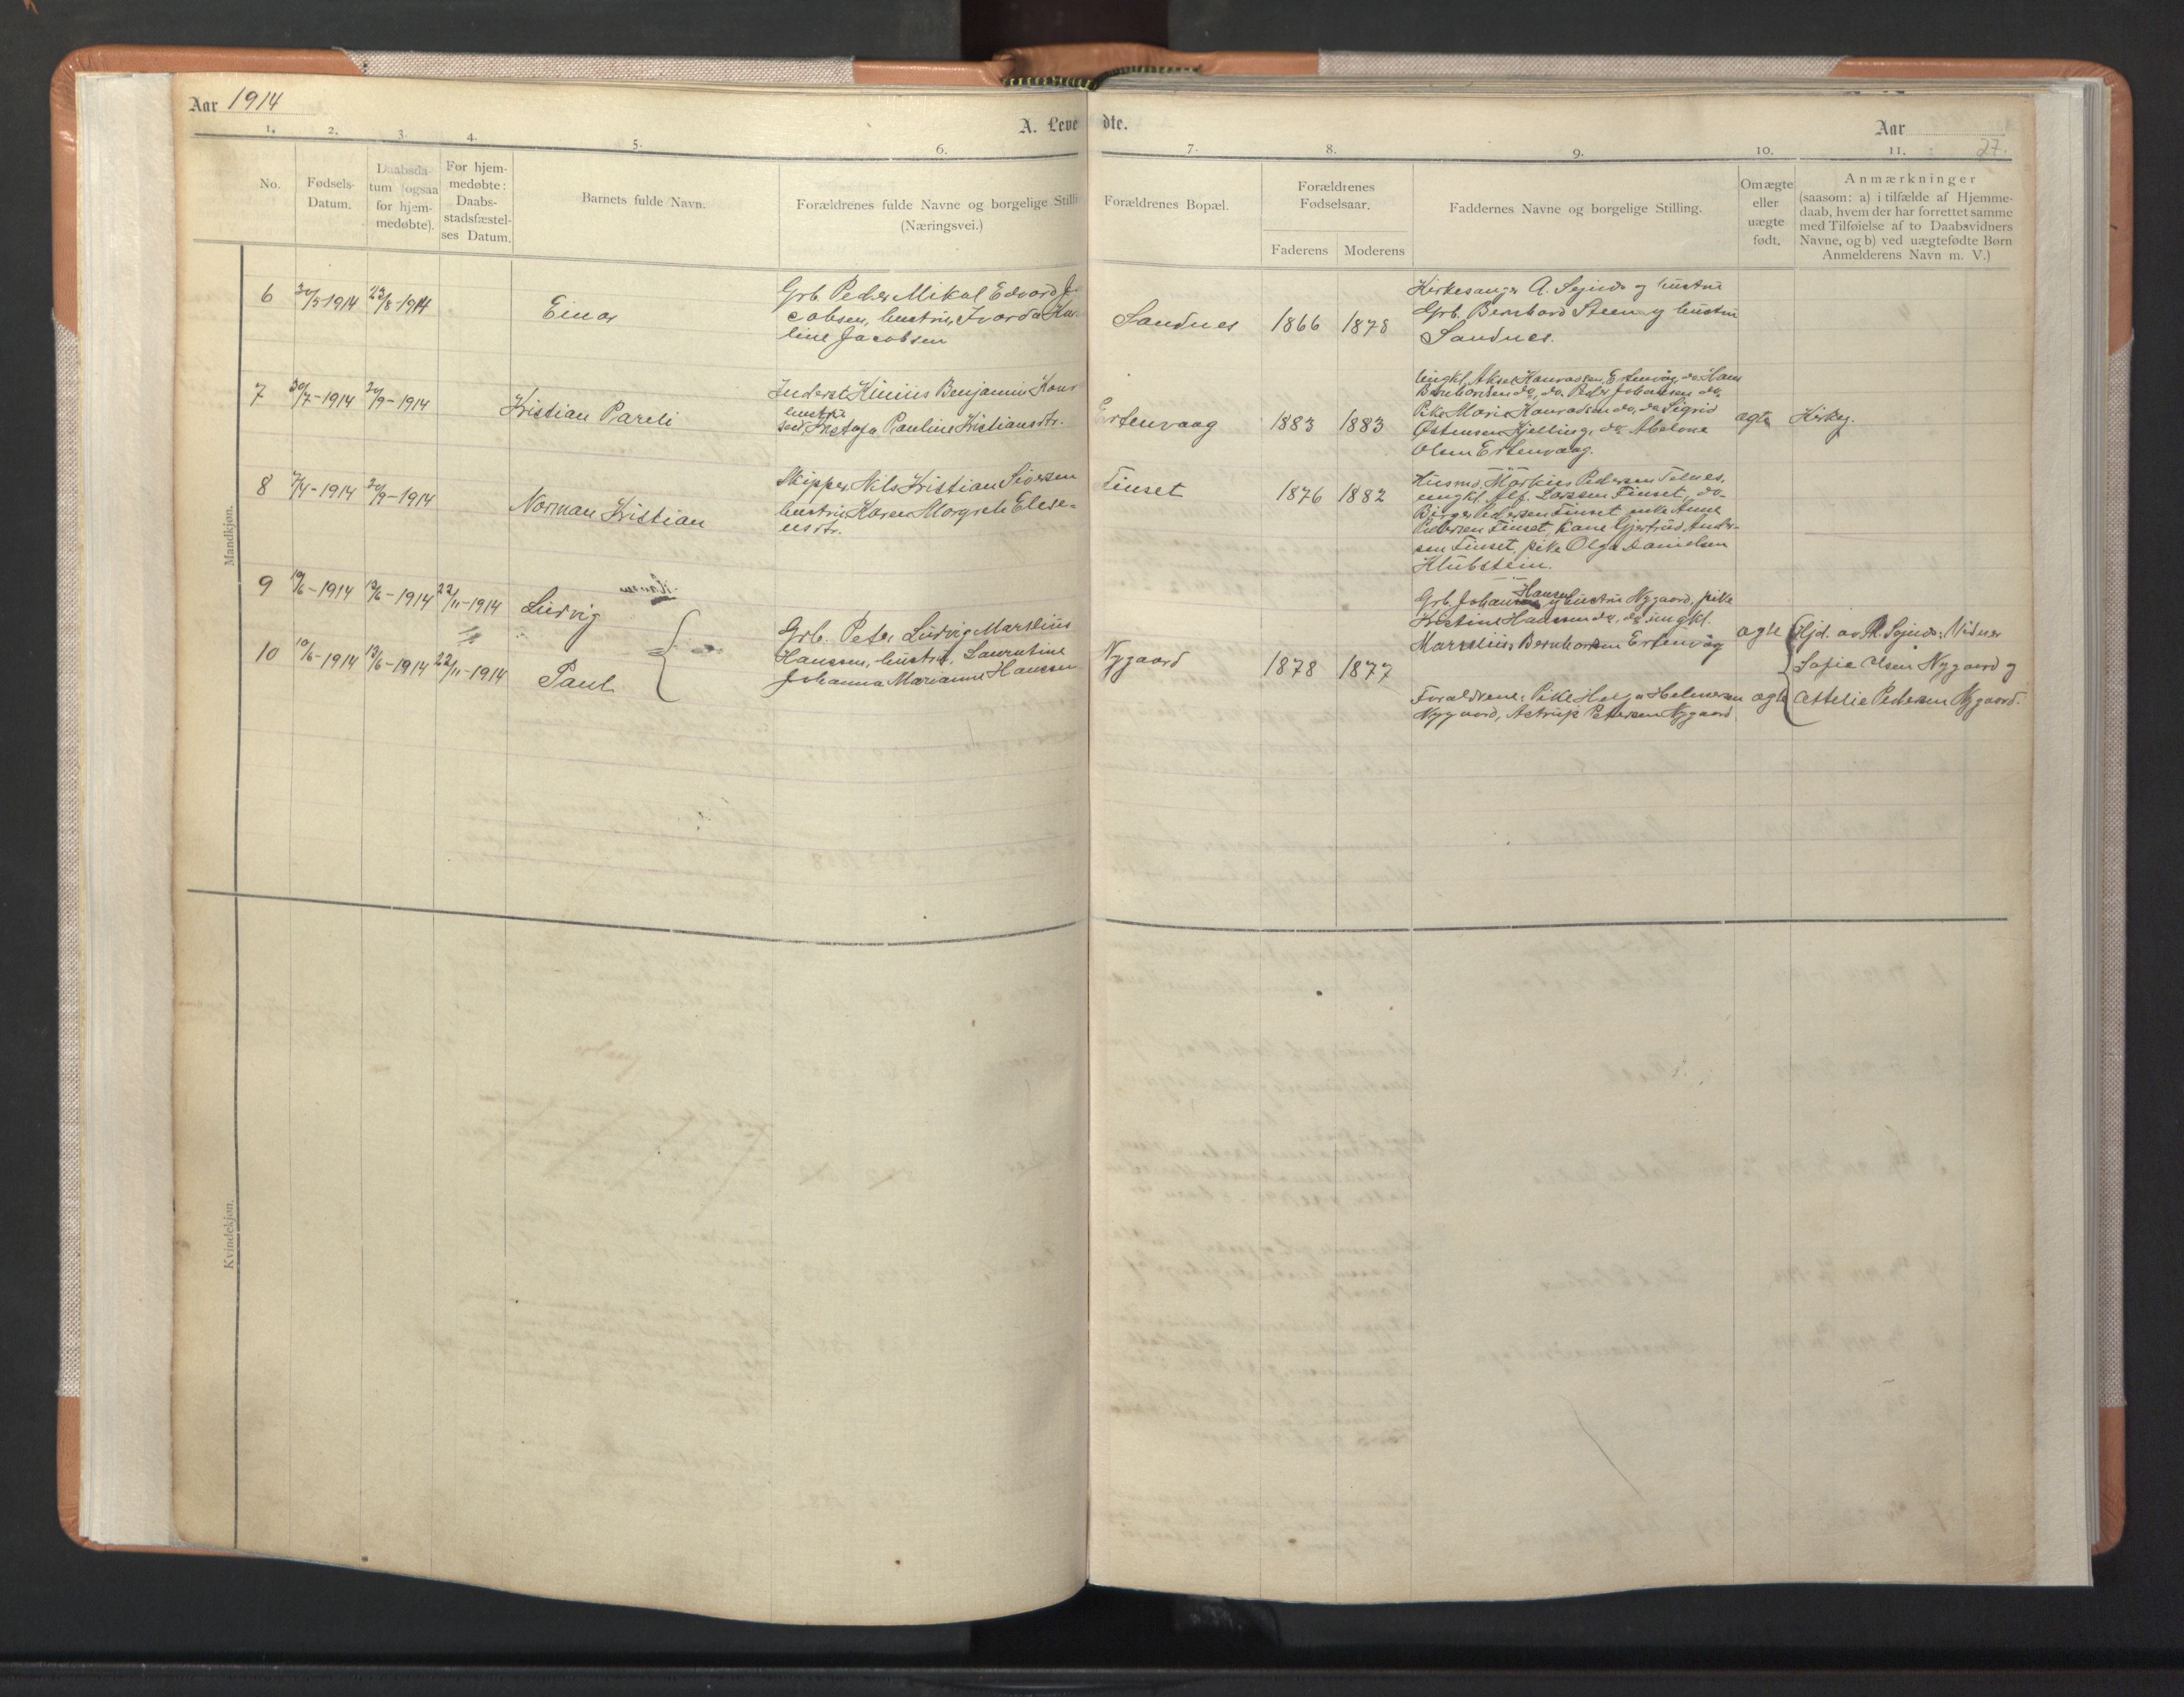 Aar 1914
A. Leve
1. 2. 3. 4. 5. 6.
No.
Fødsels-
Datum.
Daabsda-
tum (ogsaa
for hjem-
medøbte).
For hjem-
medøbte:
Daabs-
stadsfæstel-
ses Datum.
Barnets fulde Navn.
Forældrenes fulde Navne og borgelige Stilli
(Næringsvei.)
Mandkjøn.
6 30/5 1914 23/8-1914 Einar
Grb. Peder Mikal Edvard Ja
cobsen, hustru, Ivarda
line Jacobsen
7 30/7-1914 20/9-1914 Kristian Pareli
Inderst Benjamin Konr
hustru
Pauline Kristiansdtr.
8 7/4-1914 20/9-1914 Norman Kristian
Skipper Nils Kristian Siversen
hustru Karen Margrete Elese-
usdtr.
9 10/6-1914 13/6-1914 22/11-1914 Ludvig
10 10/6-1914 13/6-1914 22/11-1914 Paul
Grb. Peter Ludvig Marselius
Hansen, hustru, Laurentine
Johanna Marianne Hansen
Kvindekjøn.
dte.
Aar
7. 8. 9. 10. 11. 27.
Forældrenes Bopæl.
Forældrenes
Fødselsaar.
Faderens Moderens
Faddernes Navne og borgelige Stilling.
Om ægte
eller
uægte
født.
Anmærkninger
(saasom: a) i tilfælde af Hjemme-
daab, hvem der har forrettet samme
med Tilføielse af to Daabsvidners
Navne, og b) ved uægtefødte Børn
Anmelderens Navn m. V.)
Sandnes 1866 1878
Kirkesanger A. og hustru
Grb. Bernhard Steen og hustru
Sandnes.
Ertenvaag 1883 1883
Ungkl. Aksel Konradsen, Ertenvåg, do. Hans
Bernhardsen do, do. Peder Johansen do,
Pike Marie Konradsen do, do Sigrid
Østensen Kjelling, do Abelone
Olsen Ertenvaag.
ægte Kirkeg.
Finset 1876 1882
Husmd. Markus Pedersen
ungkl. Alf. Larssen Finset, do-
Birger Pedersen Finset enke Anne
Pedersen Finset, Kane Gjertrud Ander-
sen Finset, pike Olga Danielsen
Klubstein.
Nygaard 1878 1877
Hansen
Grb. Johan og hustru Nygaard, pike
Kristine Hansen do, do ungkl.
Marselius Bernhardsen Ertenvåg
ægte
Forældrene, Pike Helga Helmersen
Nygaard, Astrup Petersen Nygaard
ægte
Hjd. av Vidner
Sofie Olsen Nygaard og
Pedersen Nygaard.